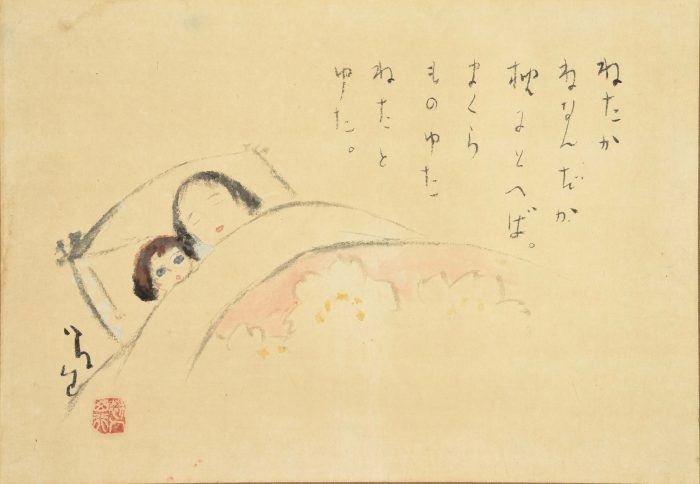 ねたか
ねなんだか
枕にとへば。
まくら
ものゆた
ねたと
ゆた。